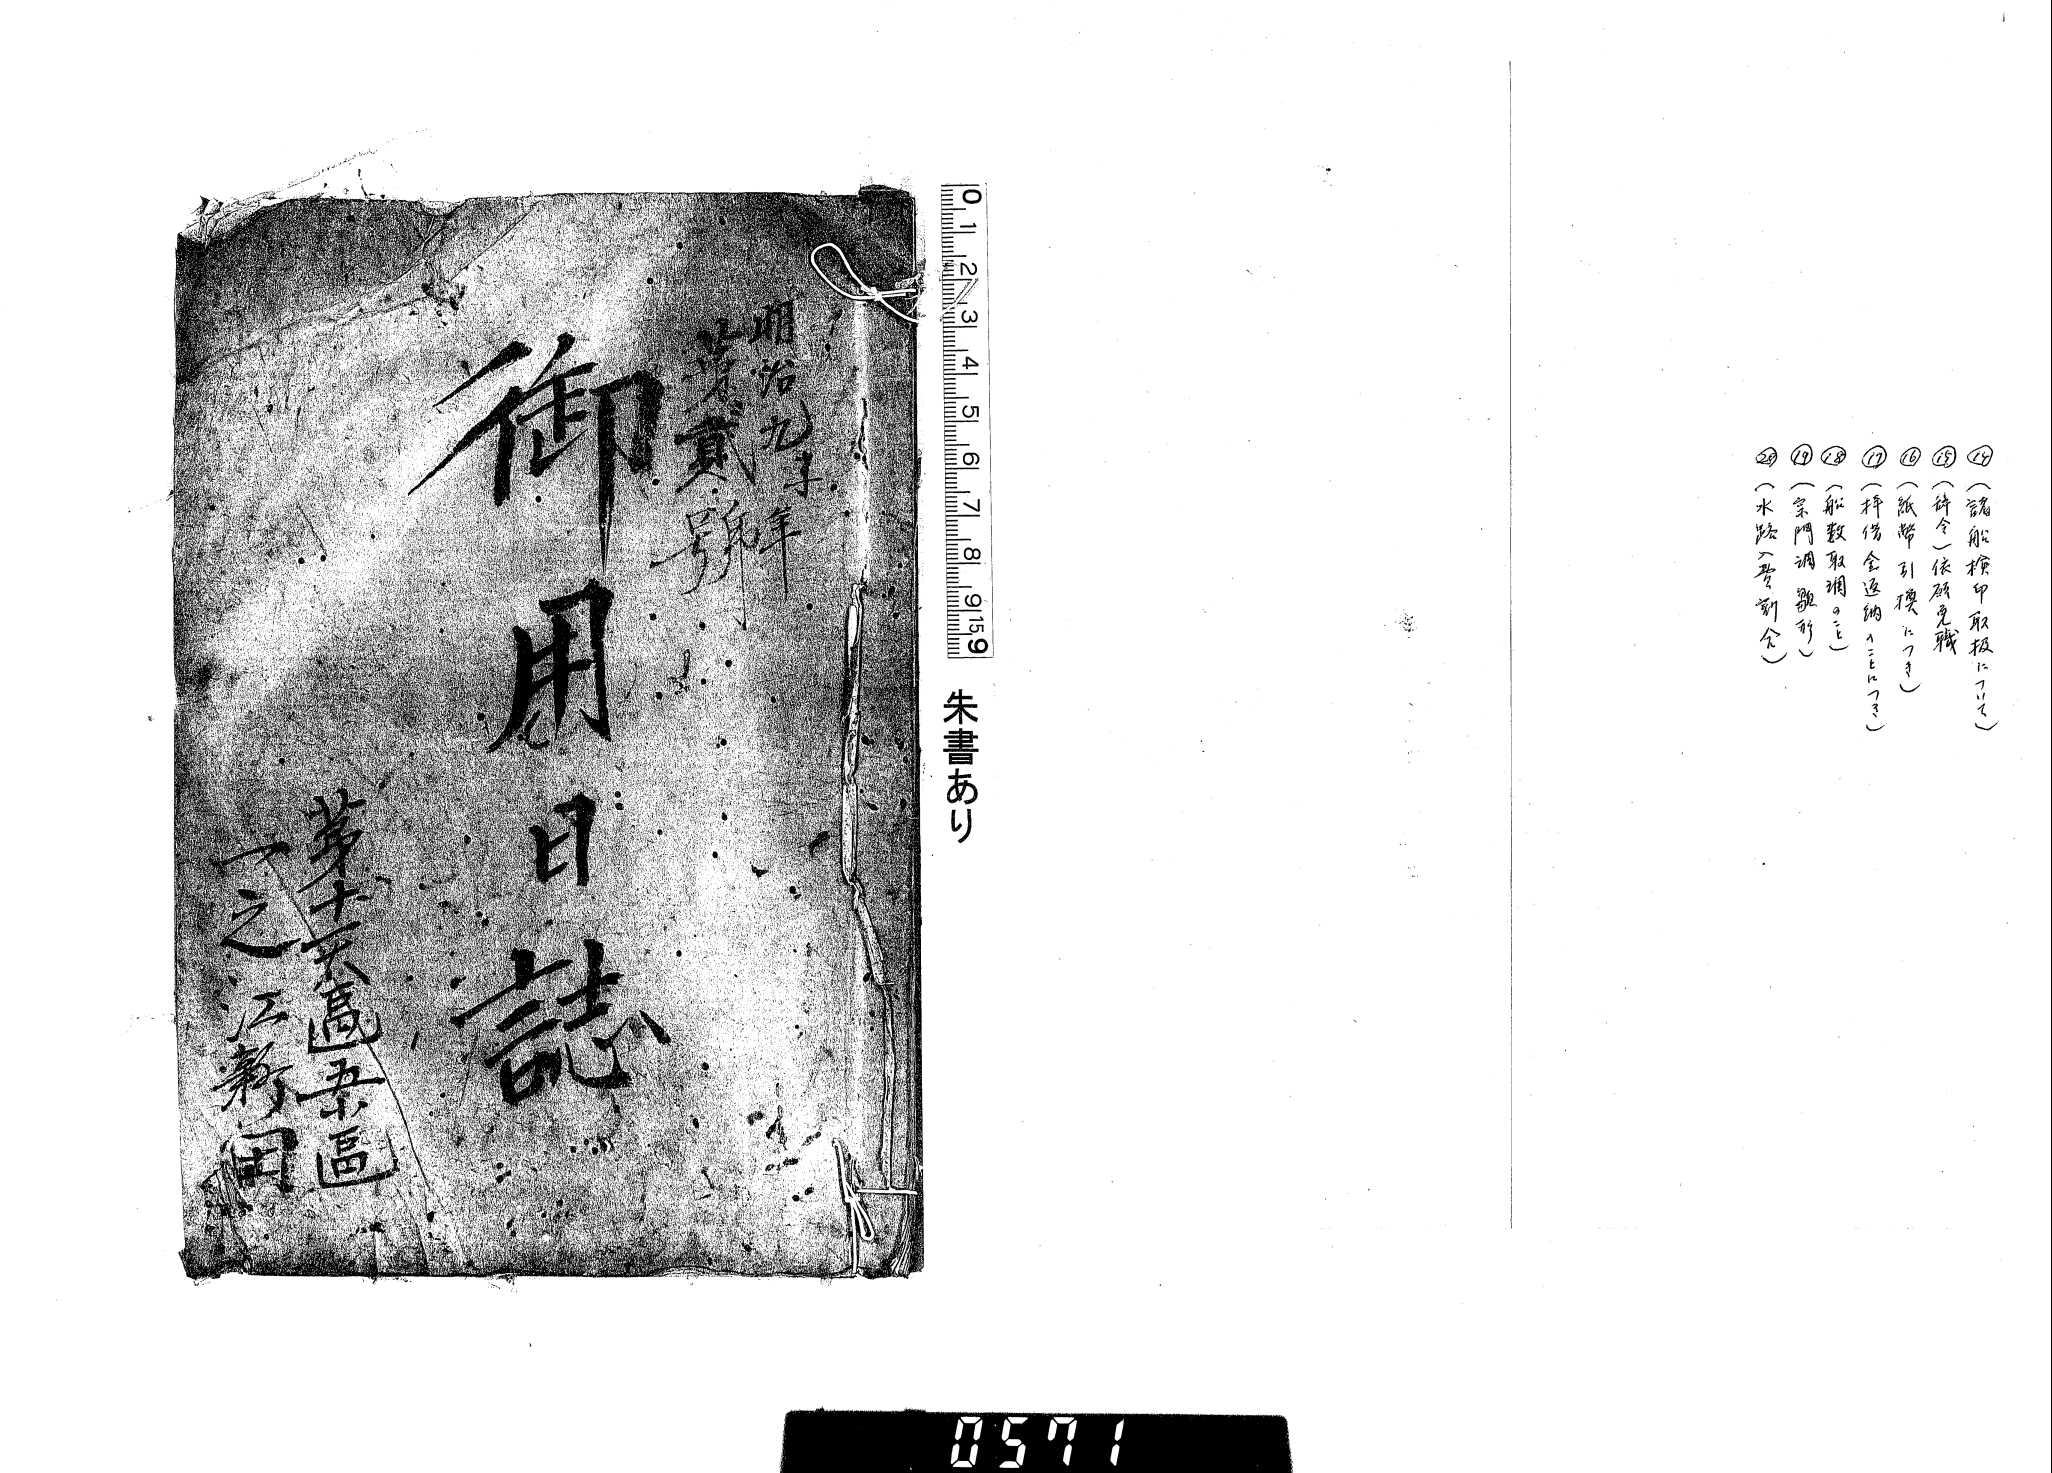 ⑭(諸船検印取扱について)
⑮(辞令)依願免職
⑯(紙幣引換につき)
⑰(拝借金返納のことにつき)
⑱(船数取調のこと)
⑲(宗門調雛形)
⑳(水路入費割合)
0 1 2 3 4 5 6 7 8 9 15 9
朱書あり
明治九年
第貳號
御用日誌
第十六區五小區
一之江新田
0571